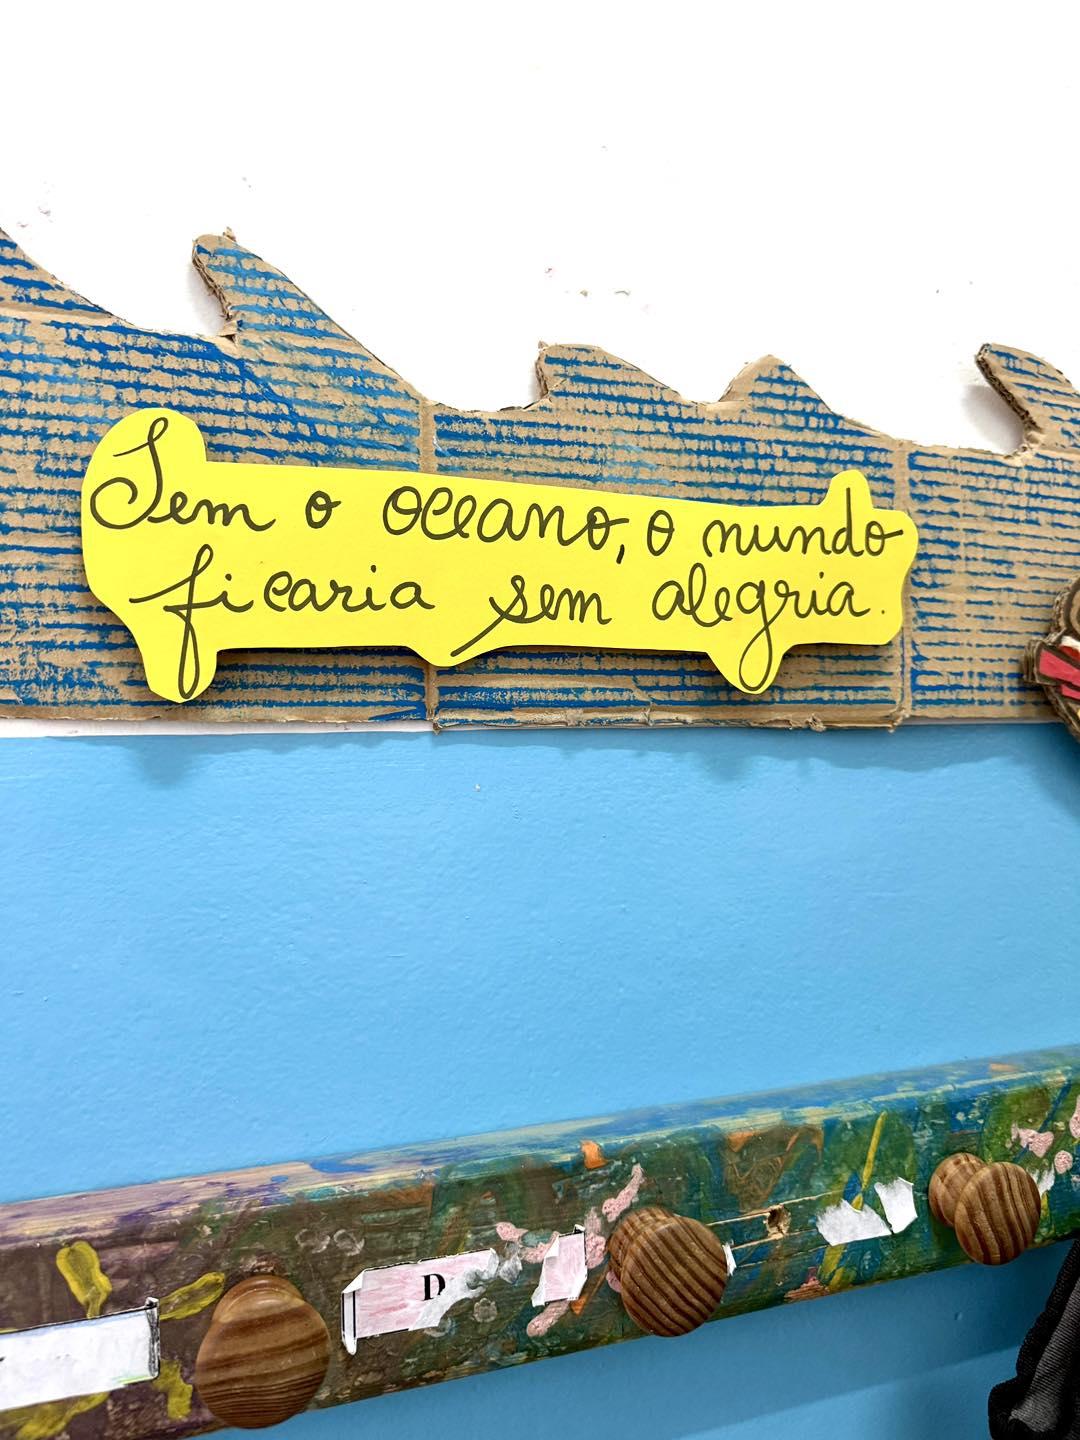 Sem o oceano, o mundo
ficaria sem alegria.
D